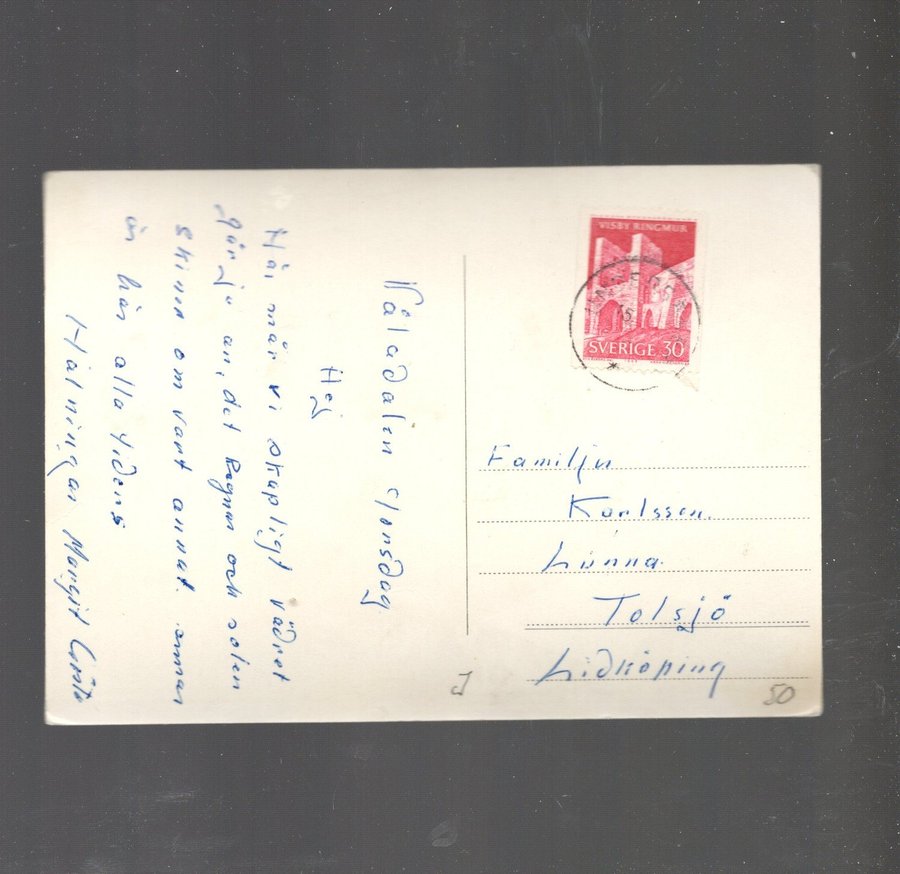 Vålådalen Onsdag
Hej
Här mår vi skapligt vädret
går ju an, det Regnar och solen
skiner om vart annat. annars
är här alla tiders
Hälningar Margit Gösta
VISBY RINGMUR
SVERIGE 30
Familjen
Karlssen.
Lunna.
Tolsjö
Lidköping
50